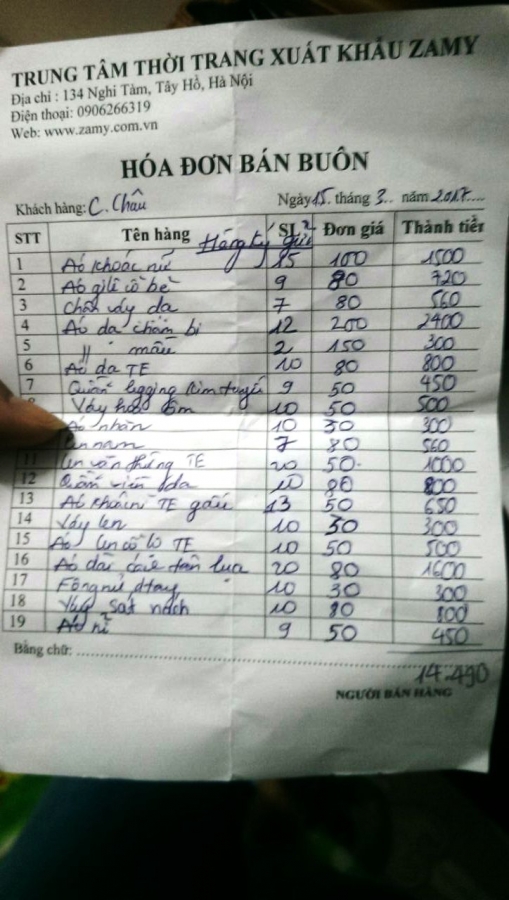 TRUNG TÂM THỜI TRANG XUẤT KHẨU ZAMY
Địa chỉ : 134 Nghi Tàm, Tây Hồ, Hà Nội
Điện thoại: 0906266319
Web: www.zamy.com.vn
HÓA ĐƠN BÁN BUÔN
Khách hàng: C. Châu Ngày 15. tháng 3.. năm 2017....
STT Tên hàng SL Đơn giá Thành tiền
Hàng ký gửi
1 Áo khoác nữ 15 100 1500
2 Áo gilê cô bé 9 80 720
3 Chân váy da 7 80 560
4 Áo da chấm bi 12 200 2400
5 " màu 2 150 300
6 Áo da TE 10 80 800
7 Quần legging 9 50 450
8 Váy 10 50 500
Áo nhăn 10 30 300
len nam 7 80 560
11 Len văn thừng TE 20 50 1000
12 Quần viền da 10 80 800
13 Áo khoác TE gấu 13 50 650
14 Váy len 10 30 300
15 Áo len cổ lọ TE 10 50 500
16 Áo dài lụa 20 80 1600
17 10 30 300
18 Váy sát nách 10 80 800
19 Áo nỉ 9 50 450
Bằng chữ: ........................
14.490
NGƯỜI BÁN HÀNG